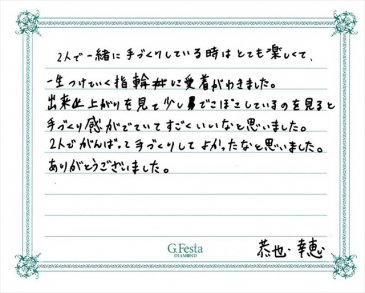 2人で一緒に手づくりしている時はとても楽しくて、
一生つけていく指輪に愛着がわきました。
出来上がりを見て少しでこぼこしているのを見ると
手づくり感がでていてすごくいいなと思いました。
2人でがんばって手づくりしてよかったなと思いました。
ありがとうございました。
G.Festa
DIAMOND
恭也・幸恵